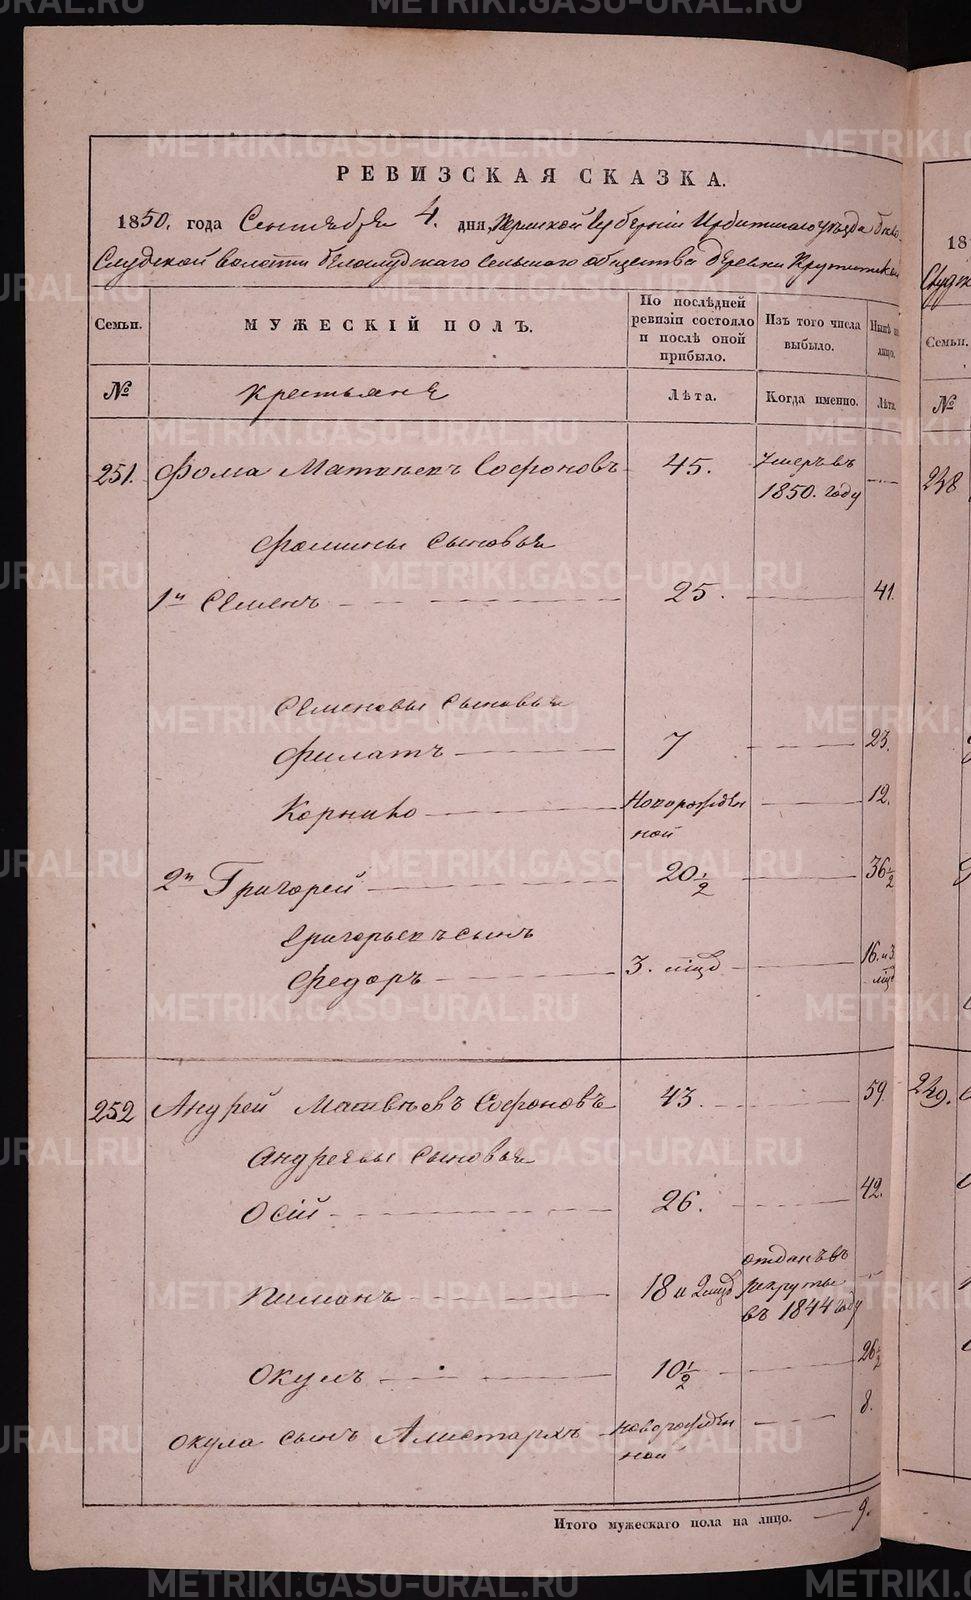 РЕВИЗСКАЯ СКАЗКА.
1850. года Сентября 4. дня, Пермской губернiи Ирбитскаго уѣзда Бѣло-
Слудской волости бѣлослудскаго сельскаго общества деревни Крутихи
Семьи.
МУЖЕСКІЙ ПОЛЪ.
По послѣдней ревизіи состояло и послѣ оной прибыло.
Изъ того числа выбыло.
Нынѣ на лицо.
№
крестьянѣ
Лѣта.
Когда именно.
Лѣта.
251. Фома Матвѣевъ Софоновъ 45. Умеръ въ 1850. году
Фомины сыновья
1й Семенъ 25. 41.
Семеновы сыновья
Филатъ 7 23.
Корнило Новорожден ной 12.
2й Григорей 20 1/2 36 1/2
Григорьевъ сынъ
Федоръ 3. мцд 16. и 3. мцд
252 Андрей Матвѣевъ Софоновъ 43. 59.
Андреевы сыновья
Осій 26. 42.
Пименъ 18 и 2 мцд отданъ въ рекруты въ 1844 году
Окулъ 10 1/2 26 1/2
Окула сынъ Алистархъ новорожден ной 8.
Итого мужескаго пола на лицо. 9.
18
Семьи.
№
248
249.
METRIKI.GASO-URAL.RU